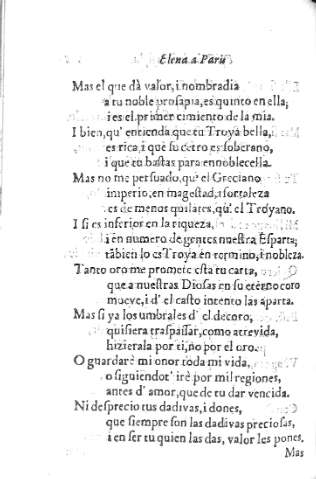 Elena a Paris
Mas el que dà valor, i nombradia
a tu noble prosapia, es quinto en ella;
i es el primer cimiento de la mia.
I bien, qu' entienda que tu Troya bella,
es rica, i que su cetro es soberano,
i que tu bastas para ennoblecella.
Mas no me persuado, qu' el Greciano
imperio, en magestad, i fortaleza
es de menos quilates, qu' el Troyano.
I si es inferior en la riqueza,
i en numero de gentes nuestra Esparta;
tãbien lo es Troya en termino, i nobleza.
Tanto oro me promete esta tu carta,
que a nuestras Diosas en su eterno coro
mueve, i d' el casto intento las aparta.
Mas si ya los umbrales d' el decoro,
quisiera traspassar, como atrevida,
hizierala por ti, no por el oro.
O guardarè mi onor toda mi vida,
o siguiendot' irè por mil regiones,
antes d' amor, que de tu dar vencida.
Ni desprecio tus dadivas, i dones,
que siempre son las dadivas preciosas,
i en ser tu quien las das, valor les pones.
Mas